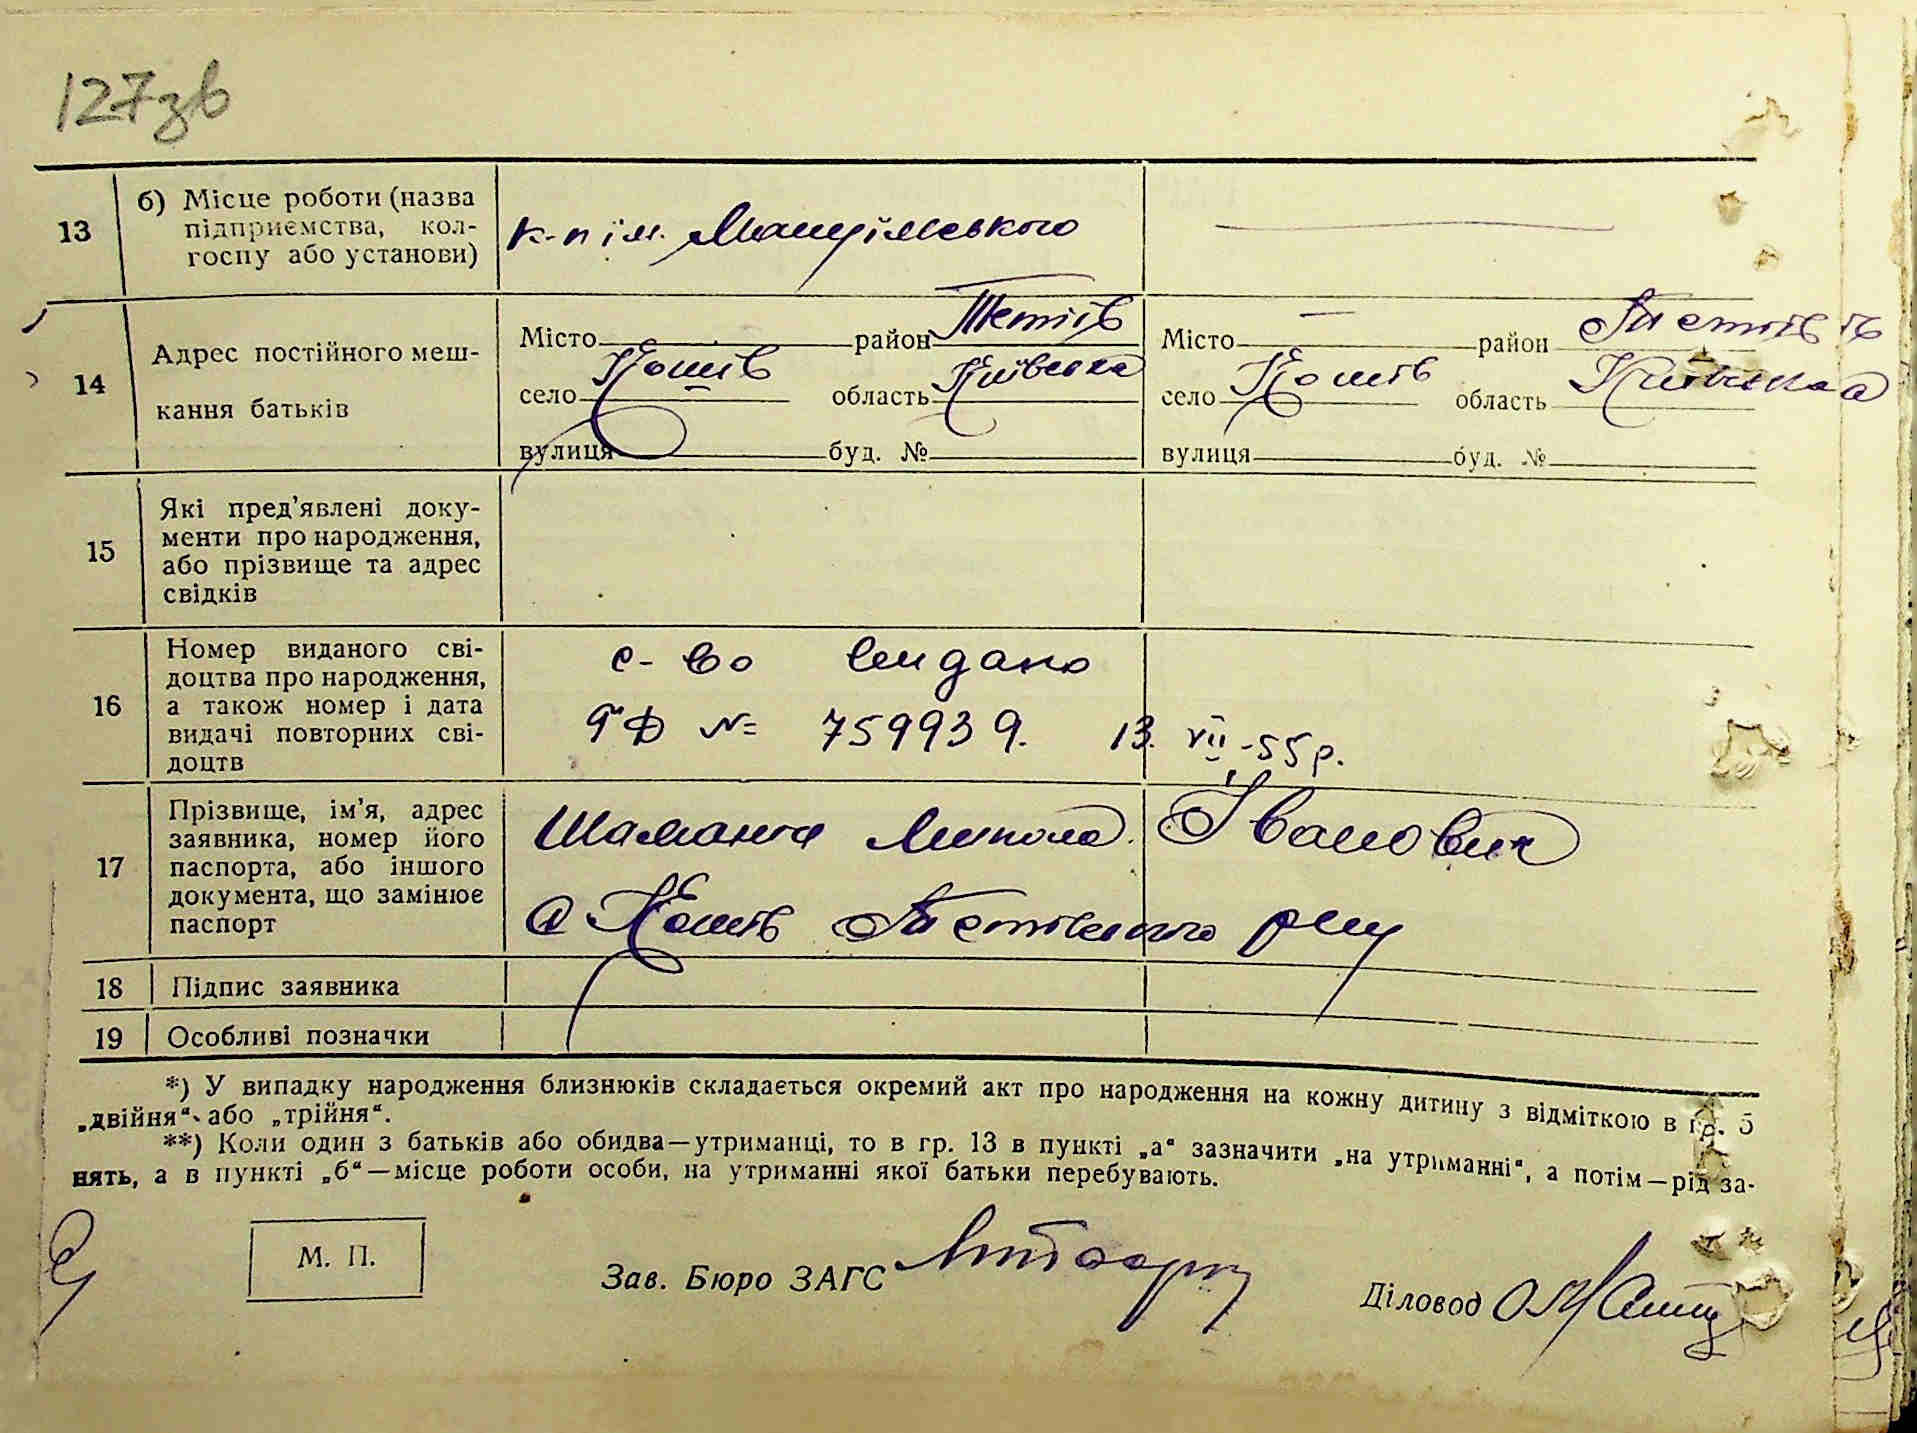 127зв
13 б) Місце роботи (назва
підприємства, кол-
госпу або установи)
к-п ім.
14 Адрес постійного меш-
кання батьків
Місто район Тетіїв
село Кошів область Київська
вулиця буд. №
Місто — район Тетіїв
село Кошів область Київська
вулиця буд. №
15 Які пред'явлені доку-
менти про народження,
або прізвище та адрес
свідків
16 Номер виданого сві-
доцтва про народження,
а також номер і дата
видачі повторних сві-
доцтв
с-во видано
№ 759939. 13. VII-55 р.
17 Прізвище, ім'я, адрес
заявника, номер його
паспорта, або іншого
документа, що замінює
паспорт
Микола Іванович
с Кошів Тетіївського р-ну
18 Підпис заявника
19 Особливі позначки
*) У випадку народження близнюків складається окремий акт про народження на кожну дитину з відміткою в гр. 5
„двійня“ або „трійня“.
**) Коли один з батьків або обидва—утриманці, то в гр. 13 в пункті „а“ зазначити „на утриманні“, а потім—рід за-
нять, а в пункті „б“—місце роботи особи, на утриманні якої батьки перебувають.
М. П.
Зав. Бюро ЗАГС
Діловод